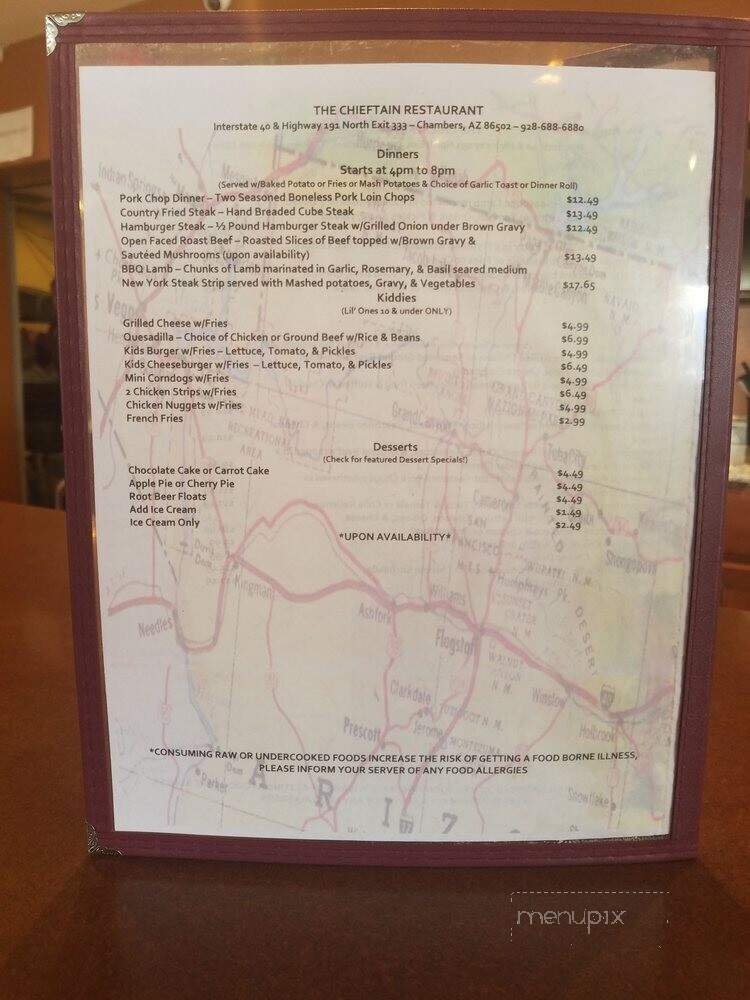 THE CHIEFTAIN RESTAURANT
Interstate 40 & Highway 191 North Exit 333 – Chambers, AZ 86502 – 928-688-6880
Dinners
Starts at 4pm to 8pm
(Served w/Baked Potato or Fries or Mash Potatoes & Choice of Garlic Toast or Dinner Roll)
Pork Chop Dinner – Two Seasoned Boneless Pork Loin Chops $12.49
Country Fried Steak – Hand Breaded Cube Steak $13.49
Hamburger Steak – ½ Pound Hamburger Steak w/Grilled Onion under Brown Gravy $12.49
Open Faced Roast Beef – Roasted Slices of Beef topped w/Brown Gravy &
Sautéed Mushrooms (upon availability) $13.49
BBQ Lamb – Chunks of Lamb marinated in Garlic, Rosemary, & Basil seared medium
New York Steak Strip served with Mashed potatoes, Gravy, & Vegetables $17.65
Kiddies
(Lil' Ones 10 & under ONLY)
Grilled Cheese w/Fries $4.99
Quesadilla – Choice of Chicken or Ground Beef w/Rice & Beans $6.99
Kids Burger w/Fries – Lettuce, Tomato, & Pickles $4.99
Kids Cheeseburger w/Fries – Lettuce, Tomato, & Pickles $6.49
Mini Corndogs w/Fries $4.99
2 Chicken Strips w/Fries $6.49
Chicken Nuggets w/Fries $4.99
French Fries $2.99
Desserts
(Check for featured Dessert Specials!)
Chocolate Cake or Carrot Cake $4.49
Apple Pie or Cherry Pie $4.49
Root Beer Floats $4.49
Add Ice Cream $1.49
Ice Cream Only $2.49
*UPON AVAILABILITY*
Kingman
Needles
Ashfork
Williams
Flagstaff
Clarkdale
Jerome
Prescott
Winslow
Holbrook
Snowflake
Parker
*CONSUMING RAW OR UNDERCOOKED FOODS INCREASE THE RISK OF GETTING A FOOD BORNE ILLNESS,
PLEASE INFORM YOUR SERVER OF ANY FOOD ALLERGIES
A R I Z
menupix